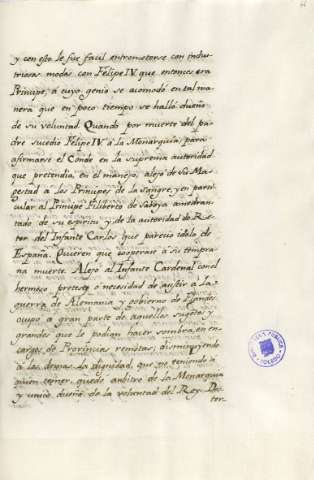 y con esto le fue facil entrometerse con indus-
triosas modas con Felipe IV. que entonces era
Principe, a cuyo genio se acomodó en tal ma-
nera que en poco tiempo se halló dueño
de su voluntad. Quando por muerte del pa-
dre sucedio Felipe IV á la Monarquia, para
afirmarse el Conde en la suprema autoridad
que pretendia, en el manejo, alejó de Su Ma-
gestad á los Principes de la Sangre, y en parti-
cular al Principe Filiberto de Saboya amedran-
tado de su espiritu y de la autoridad de Re-
tor del Infante Carlos que parecio idolo de
España. Quieren que cooperase a su tempra-
na muerte. Alejó al Infante Cardenal con el
hermoso pretesto ó necesidad de asistir a la
guerra de Alemania y gobierno de Flandes.
ocupó a gran parte de aquellos sugetos y
grandes que le podian hacer sombra en en-
cargos de Provincias remotas; disminuyendo
á los demas la dignidad, que no teniendo á
quien temer, quedó arbitro de la Monarquia
y unico dueño de la voluntad del Rey. Do-
tor